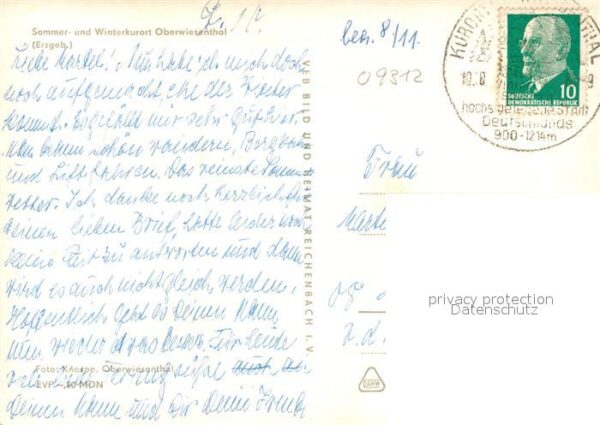 Z. 10.
Sommer- und Winterkurort Oberwiesenthal
(Erzgeb.)
Liebe Martel! Nun habe ich mich doch
noch aufgemacht, ehe der Winter
kommt. Es gefällt mir sehr gut hier.
Man kann schön wandern, Bergbahn
und Lift fahren. Das reinste Sommer
wetter. Ich danke noch herzlich für
Deinen lieben Brief, hatte leider noch
keine Zeit zu antworten und dann
wird es auch nicht gleich werden.
Hoffentlich geht es Deinem Mann
nun wieder etwas besser. Für heute
viele liebe Grüße
Foto: Knospe, Oberwiesenthal
EVP -,20 MDN
Deinem Mann und Dir Deine
VEB BILD UND HEIMAT REICHENBACH I. V.
bea. 8/11.
09312
KURORT THAL
10.8
DEUTSCHE
DEMOKRATISCHE REPUBLIK
10
höchstgelegene Stadt
Deutschlands
900-1214m
Frau
privacy protection
Datenschutz